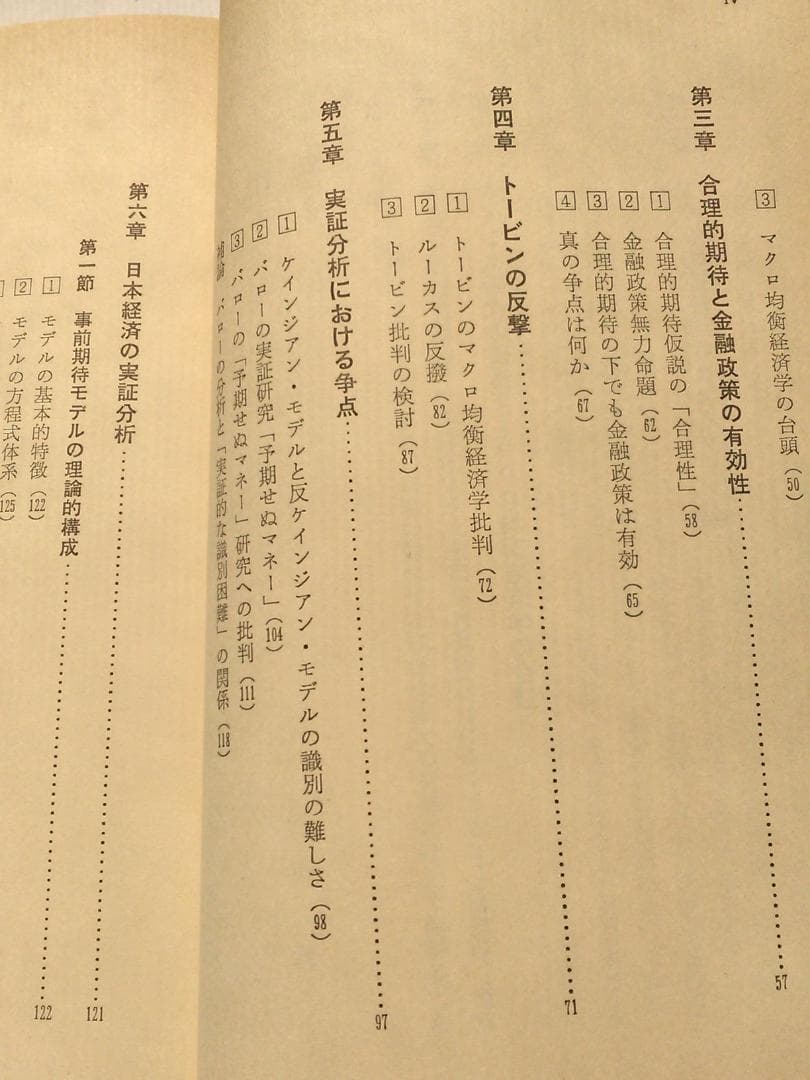 iv
③ マクロ均衡経済学の台頭(50)
第三章 合理的期待と金融政策の有効性……57
1 合理的期待仮説の「合理性」(58)
2 金融政策無力命題(62)
3 合理的期待の下でも金融政策は有効(65)
4 真の争点は何か(67)
第四章 トービンの反撃……71
1 トービンのマクロ均衡経済学批判(72)
2 ルーカスの反撥(82)
3 トービン批判の検討(87)
第五章 実証分析における争点……97
1 ケインジアン・モデルと反ケインジアン・モデルの識別の難しさ(98)
2 バローの実証研究「予期せぬマネー」(104)
3 バローの「予期せぬマネー」研究への批判(111)
補論 バローの分析と「実証的な識別困難」の関係(118)
第六章 日本経済の実証分析……121
第一節 事前期待モデルの理論的構成……122
1 モデルの基本的特徴(122)
2 モデルの方程式体系(125)